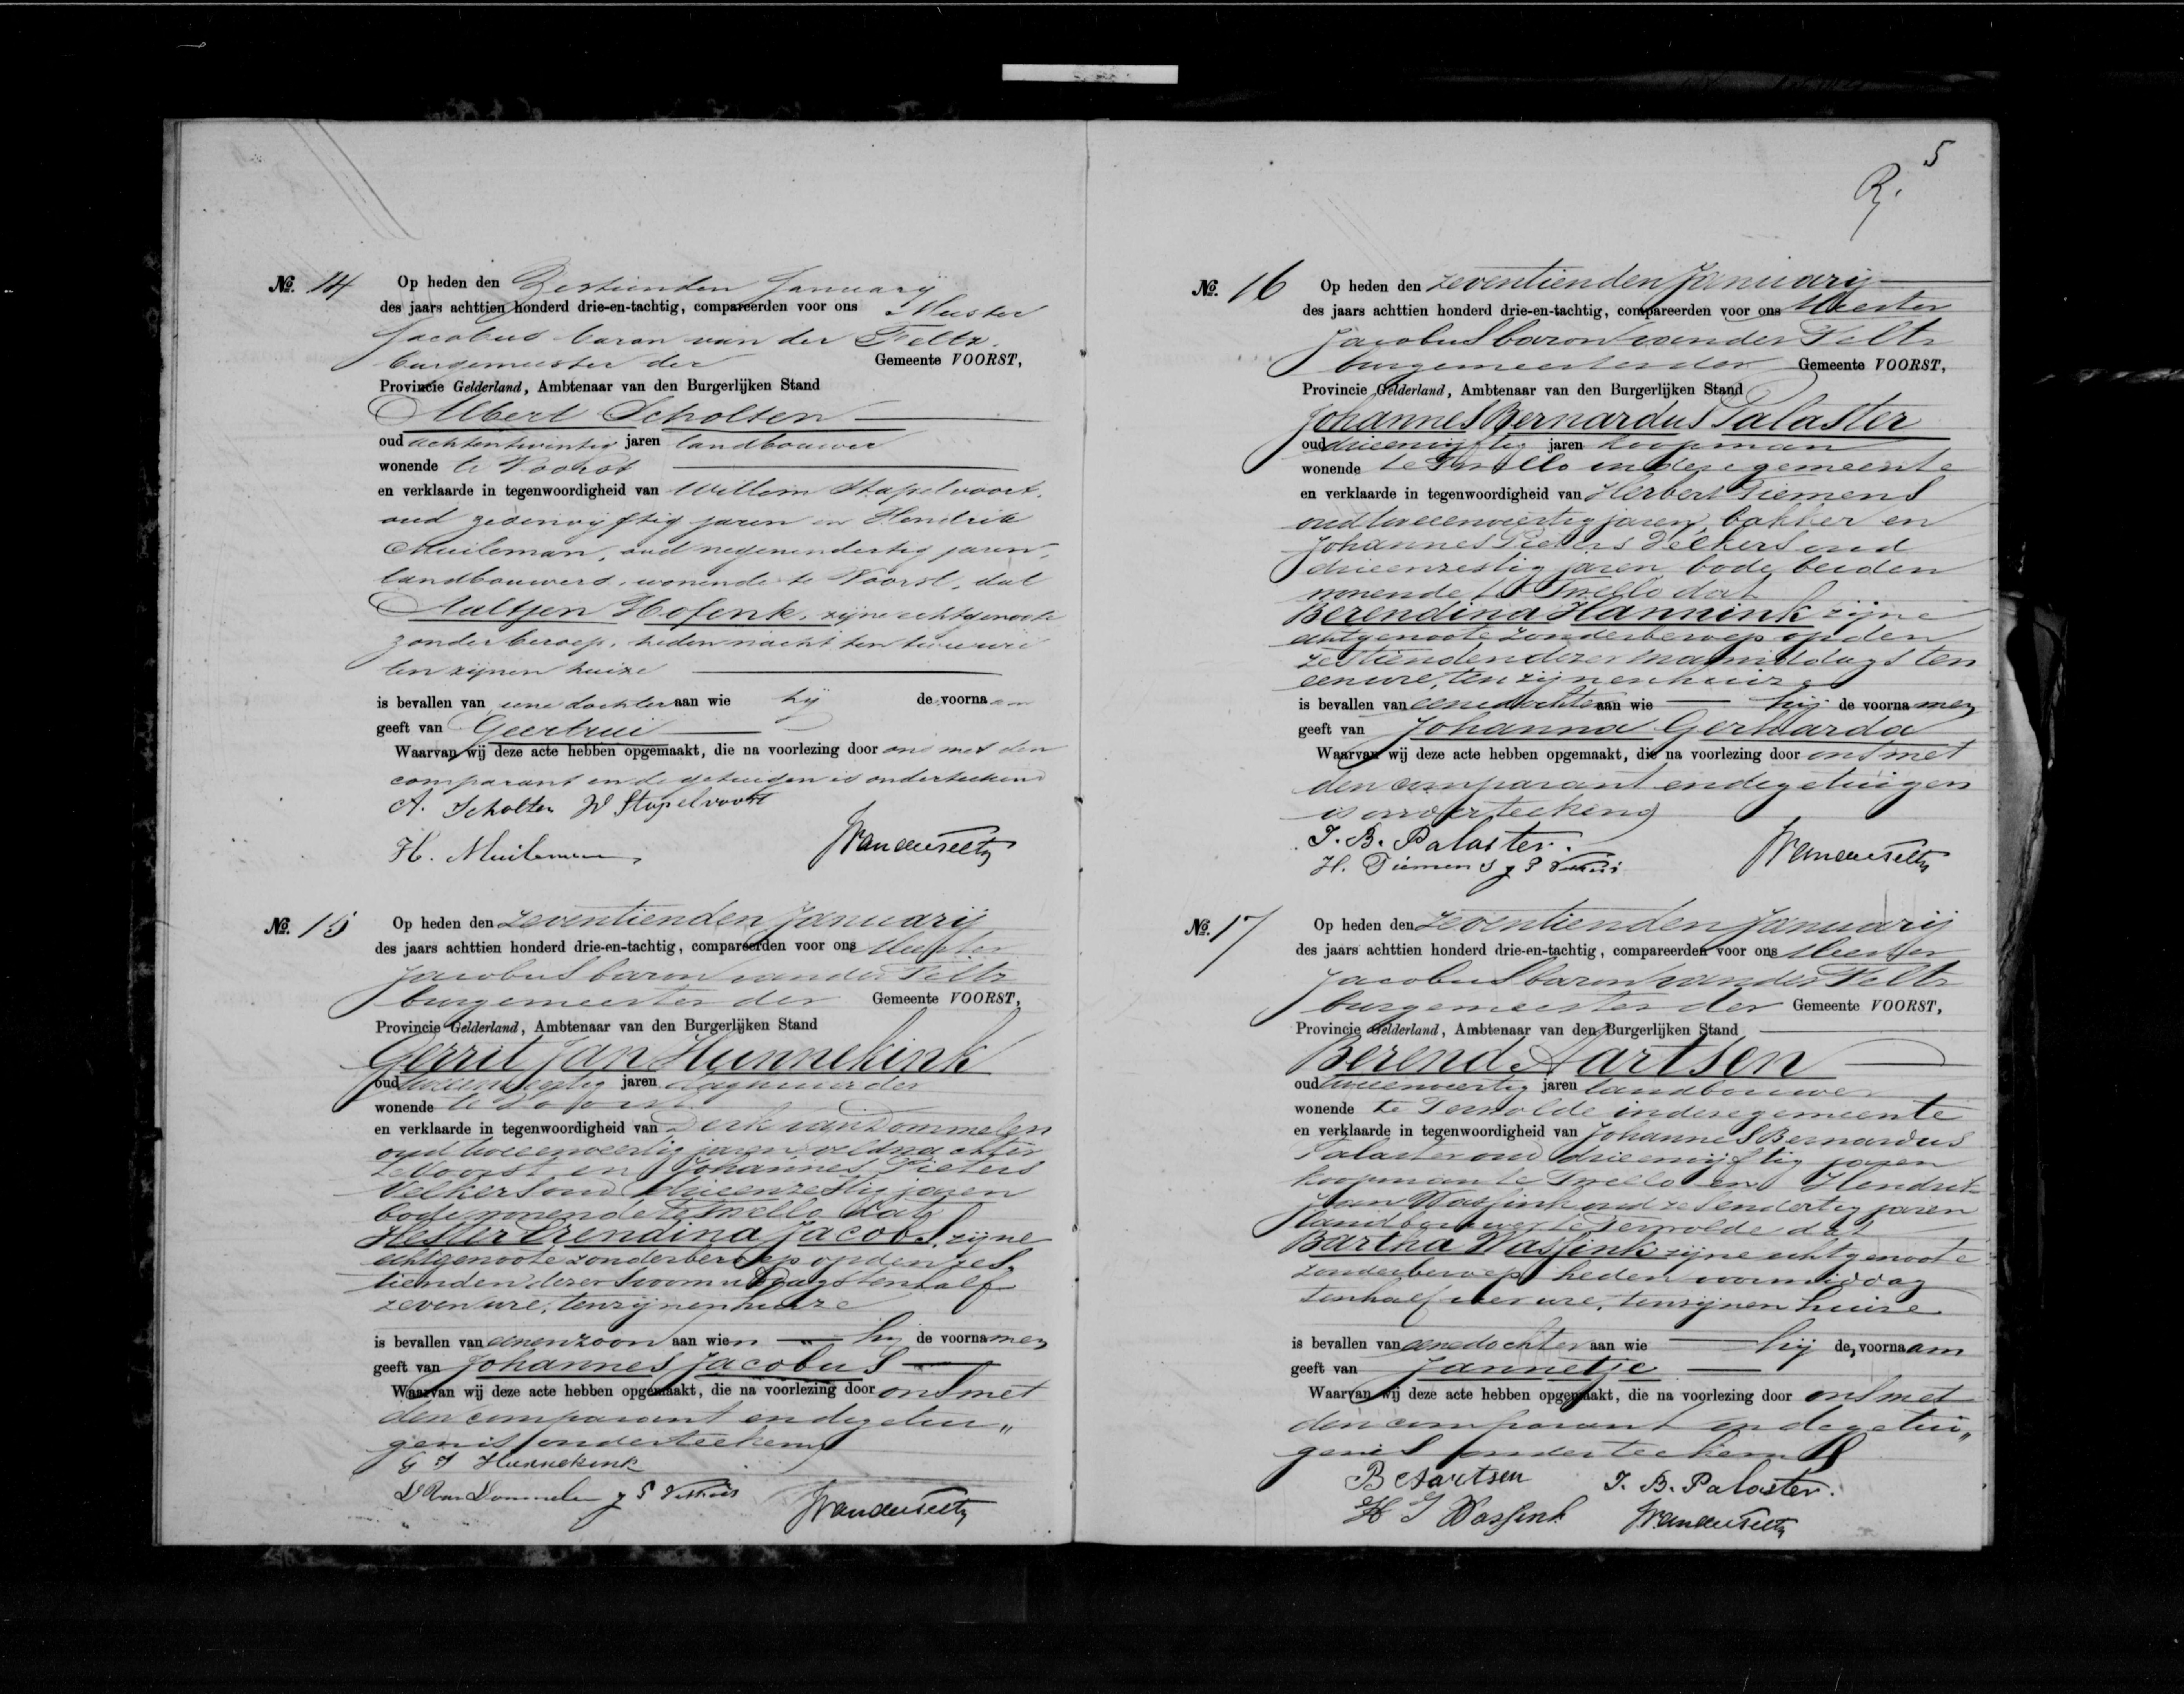 No. 14 Op heden den Zestienden January
des jaars achttien honderd drie-en-tachtig, compareerden voor ons Meester
Jacobus baron van der Feltz.
burgemeester der Gemeente VOORST,
Provincie Gelderland, Ambtenaar van den Burgerlijken Stand
Albert Scholten
oud achtentwintig jaren landbouwer
wonende te Voorst
en verklaarde in tegenwoordigheid van Willem Stapelvoort.
oud zesenvyftig jaren en Hendrik
Muileman, oud negenendertig jaren,
landbouwers, wonende te Voorst, dat
Aaltjen Hofenk, zijne echtgenoote
zonder beroep, heden nacht ten twee ure
ten zijnen huize
is bevallen van eene dochter aan wie hij de voornaam
geeft van Geertrui
Waarvan wij deze acte hebben opgemaakt, die na voorlezing door ons met den
comparant en de getuigen is onderteekend
A. Scholten W Stapelvoort
H. Muileman
JvanderFeltz
No. 15 Op heden den zeventienden Januarij
des jaars achttien honderd drie-en-tachtig, compareerden voor ons Meester
Jacobus baron van der Feltz
burgemeester der Gemeente VOORST,
Provincie Gelderland, Ambtenaar van den Burgerlijken Stand
Gerrit Jan Hunnekink
oud jaren daghuurder
wonende te Voorst
en verklaarde in tegenwoordigheid van Derk van Dommelen
oud tweeenveertig jaren veldwachter
te Voorst en Johannes Pieters
oud drieenzestig jaren
bode wonende te Twello dat
Hester Berendina Jacobs, zijne
echtgenoote zonder beroep op den zes
tienden dezer voormiddags ten half
zeven ure, ten zijnen huize
is bevallen van eenen zoon aan wien hij de voornamen
geeft van Johannes Jacobus
Waarvan wij deze acte hebben opgemaakt, die na voorlezing door ons met
den comparant en de getui„
gen is onderteekend
G J Hunnekink
D Van Dommelen
JvanderFeltz
5
No. 16 Op heden den zeventienden Januarij
des jaars achttien honderd drie-en-tachtig, compareerden voor ons Meester
Jacobus baron van der Feltz
burgemeester der Gemeente VOORST,
Provincie Gelderland, Ambtenaar van den Burgerlijken Stand
Johannes Bernardus Palaster
oud drieenvijftig jaren koopman
wonende te Twello in deze gemeente
en verklaarde in tegenwoordigheid van Herbert Tiemens
oud tweeenveertig jaren, bakker en
Johannes Pieters oud
drieenzestig jaren bode beiden
wonende te Twello dat
Berendina Hannink zijne
echtgenoote zonder beroep op den
zestienden dezer namiddags ten
een ure, ten zijnen huize
is bevallen van eene dochter aan wie hij de voornamen
geeft van Johanna Gerharda
Waarvan wij deze acte hebben opgemaakt, die na voorlezing door ons met
den comparant en de getuigen
is onderteekend
J. B. Palaster.
H. Tiemens
JvanderFeltz
No. 17 Op heden den zeventienden Januarij
des jaars achttien honderd drie-en-tachtig, compareerden voor ons Meester
Jacobus baron van der Feltz
burgemeester der Gemeente VOORST,
Provincie Gelderland, Ambtenaar van den Burgerlijken Stand
Berend Aartsen
oud tweeenveertig jaren landbouwer
wonende te Terwolde in deze gemeente
en verklaarde in tegenwoordigheid van Johannes Bernardus
Palaster oud drieenvijftig jaren
koopman te Twello en Hendrik
Jan Wassink oud zesendertig jaren
landbouwer te Terwolde dat
Bartha Wassink zijne echtgenoote
zonder beroep heden voormiddag
ten half vier ure, ten zijnen huize
is bevallen van eene dochter aan wie hij de voornaam
geeft van Jannetje
Waarvan wij deze acte hebben opgemaakt, die na voorlezing door ons met
den comparant en de getui„
gen is onderteekend
B Aartsen J. B. Palaster.
H J Wassink JvanderFeltz